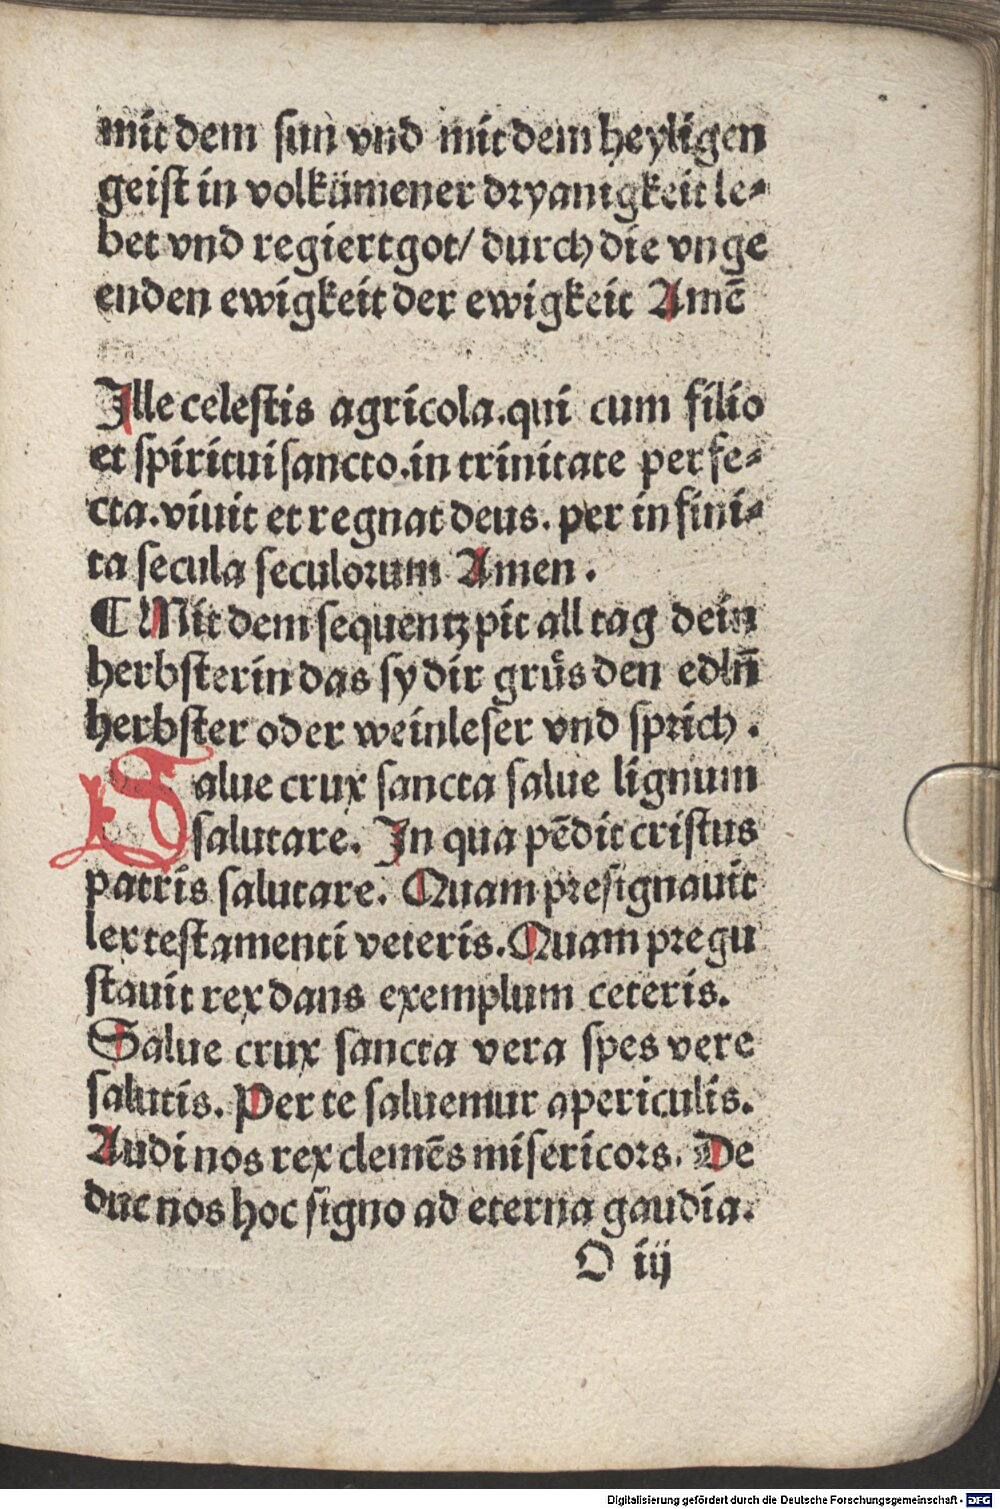 mit dem sun vnd mit dem heyligen
geist in volkümener dryanigkeit le⸗
bet vnd regiert got/ durch die vnge
enden ewigkeit der ewigkeit Amē
Ille celestis agricola. qui cum filio
et spiritui sancto. in trinitate perfe⸗
cta. viuit et regnat deus. per infini⸗
ta secula seculorum Amen.
¶ Mit dem sequentz pit all tag dein
herbsterin das sy dir grüs den edln̄
herbster oder weinleser vnd sprich.
Salue crux sancta salue lignum
salutare. In qua pēdit cristus
patris salutare. Quam presignauit
lex testamenti veteris. Quam pregu
stauit rex dans exemplum ceteris.
Salue crux sancta vera spes vere
salutis. Per te saluemur a periculis.
Audi nos rex clemēs misericors. De
duc nos hoc signo ad eterna gaudia.
O iij
Digitalisierung gefördert durch die Deutsche Forschungsgemeinschaft - DFG